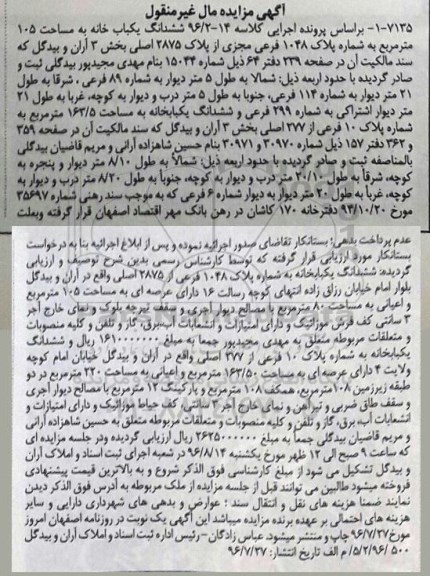 آگهی مزایده مال غیرمنقول
۷۱۳۵-۱- براساس پرونده اجرایی کلاسه ۱۴-۹۶/۲ ششدانگ یکباب خانه به مساحت ۱۰۵
مترمربع به شماره پلاک ۱۰۴۸ فرعی مجزی از پلاک ۲۸۷۵ اصلی بخش ۳ آران و بیدگل که
سند مالکیت آن در صفحه ۲۳۹ دفتر ۶۴ ذیل شماره ۱۵۰۴۴ بنام مهدی مجیدپور بیدگلی ثبت و
صادر گردیده با حدود اربعه ذیل: شمالا به طول ۵ متر دیوار به شماره ۸۹ فرعی ، شرقا به طول
۲۱ متر دیوار به شماره ۱۱۴ فرعی، جنوبا به طول ۵ متر درب و دیوار به کوچه، غربا به طول ۲۱
متر دیوار اشتراکی به شماره ۲۹۹ فرعی و ششدانگ یکبابخانه به مساحت ۱۶۳/۵ مترمربع به
شماره پلاک ۱۰ فرعی از ۲۷۷ اصلی بخش ۳ آران و بیدگل که سند مالکیت آن در صفحه ۳۵۹
و ۳۶۲ دفتر ۱۵۷ ذیل شماره ۳۰۹۷۰ و ۳۰۹۷۱ بنام حسین شاهزاده آرانی و مریم قاضیان بیدگلی
بالمناصفه ثبت و صادر گردیده با حدود اربعه ذیل: شمالاً به طول ۸/۱۰ متر دیوار و پنجره به
کوچه، شرقا به طول ۲۰/۱۰ متر درب و دیوار به کوچه، جنوباً به طول ۸/۲۰ متر درب و دیوار به
کوچه، غربا به طول ۲۰ متر دیوار به دیوار شماره ۶ فرعی که به موجب سند رهنی شماره ۳۵۶۹۷
مورخ ۹۳/۱۰/۲۰ دفترخانه ۱۷۰ کاشان در رهن بانک مهر اقتصاد اصفهان قرار گرفته وبعلت
عدم پرداخت بدهی؛ بستانکار تقاضای صدور اجرائیه نموده و پس از ابلاغ اجرائیه بنا به درخواست
بستانکار مورد ارزیابی قرار گرفته که توسط کارشناس رسمی بدین شرح توصیف و ارزیابی
گردیده: ششدانگ یکبابخانه به شماره پلاک ۱۰۴۸ فرعی از ۲۸۷۵ اصلی واقع در آران و بیدگل
بلوار امام خیابان رزاق زاده انتهای کوچه رسالت ۱۶ دارای عرصه ای به مساحت ۱۰۵ مترمربع
و اعیانی به مساحت ۸۰ مترمربع با مصالح دیوار آجری و سقف تیرچه بلوک و نمای خارج آجر
۳ سانتی کف فرش موزائیک و دارای امتیازات و انشعابات آب،برق، گاز و تلفن و کلیه منصوبات
و متعلقات مربوطه متعلق به مهدی مجیدپور جمعا به مبلغ ۱۶۱۰۰۰۰۰۰۰ ریال و ششدانگ
یکبابخانه به شماره پلاک ۱۰ فرعی از ۲۷۷ اصلی واقع در آران و بیدگل خیابان امام کوچه
ولایت ۴ دارای عرصه ای به مساحت ۱۶۳/۵۰ مترمربع و اعیانی به مساحت ۲۲۰ مترمربع در دو
طبقه زیرزمین ۱۰۸مترمربع، همکف ۱۰۸ مترمربع و پارکینگ ۱۲ مترمربع با مصالح دیوار آجری
و سقف طاق ضربی و تیرآهن و نمای خارج آجر ۳ سانتی، کف حیاط موزائیک و دارای امتیازات و
انشعابات آب، برق، گاز و تلفن و کلیه منصوبات و متعلقات مربوطه متعلق به حسین شاهزاده آرانی
و مریم قاضیان بیدگلی جمعاً به مبلغ ۲۶۲۵۰۰۰۰۰۰ ریال ارزیابی گردیده ودر جلسه مزایده ای
که ساعت ۹ صبح الی ۱۲ ظهر مورخ یکشنبه ۹۶/۸/۱۴ در شعبه اجرای ثبت اسناد و املاک آران
و بیدگل تشکیل می شود از مبلغ کارشناسی فوق الذکر شروع و به بالاترین قیمت پیشنهادی
فروخته میشود طالبین می توانند قبل از جلسه مزایده از ملک مربوطه به آدرس فوق الذکر دیدن
نمایند ضمنا هزینه های نقل و انتقال سند ؛ عوارض و بدهی های شهرداری دارایی و سایر
هزینه های احتمالی بر عهده برنده مزایده میباشد این آگهی یک نوبت در روزنامه اصفهان امروز
مورخ ۹۶/۷/۲۷ چاپ و منتشر میشود. عباس زادگان – رئیس اداره ثبت اسناد و املاک آران و بیدگل
۵۰۰ /۵/۲/۹۶ م الف تاریخ انتشار: ۹۶/۷/۲۷